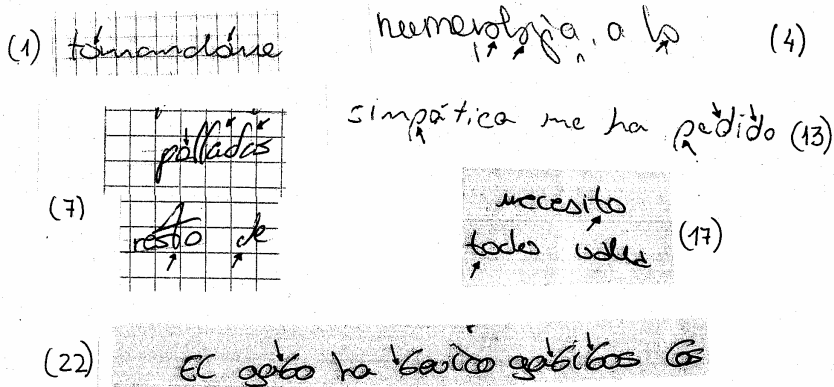 (1) tomandome
numerología, a lo (4)
simpática me ha pedido (13)
(7)
resto de
necesito
todo (17)
(22) El gato ha tenido gatitos los